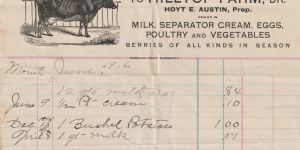 TO TREETOP FARM, DR.
HOYT E. AUSTIN, Prop.
DEALER IN
MILK, SEPARATOR CREAM, EGGS,
POULTRY and VEGETABLES
BERRIES OF ALL KINDS IN SEASON
Month June
12 qts milk 84
June 9 1/2 Pt cream .10
Dec 1 Bushel Potatoes 1.00
April 1 qt milk .07